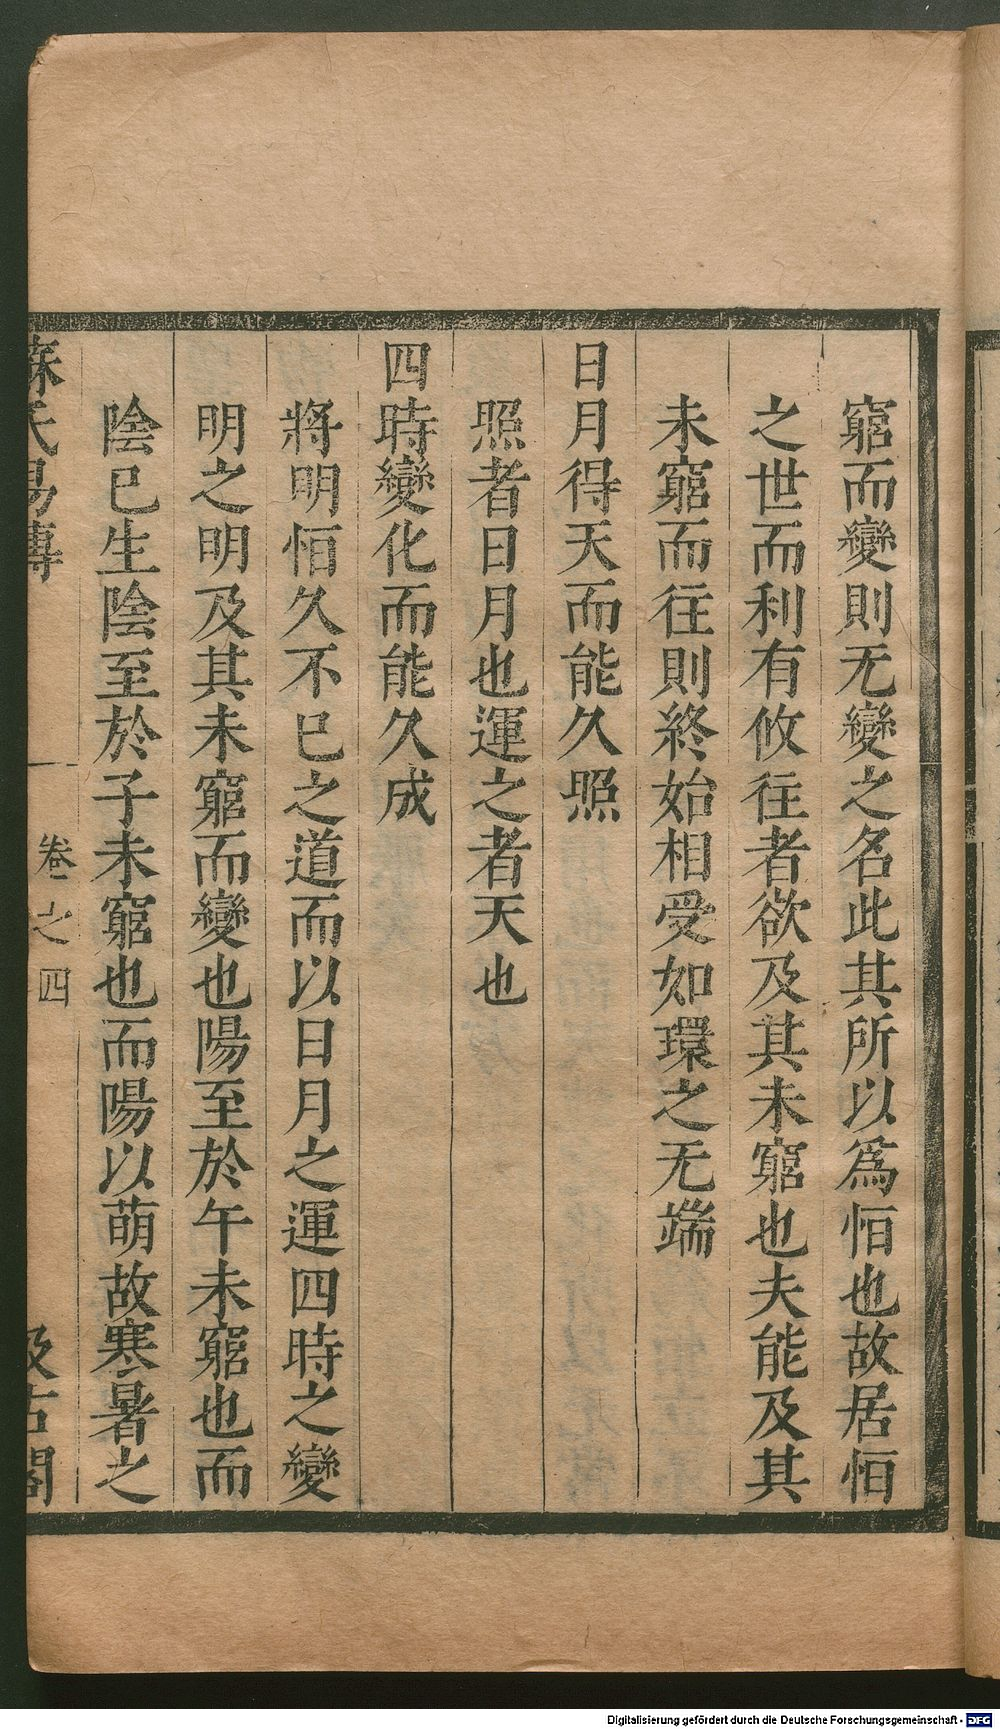 窮而變則无變之名此其所以爲恒也故居恒
之世而利有攸往者欲及其未窮也夫能及其
未窮而往則終始相受如環之无端
日月得天而能久照
照者日月也運之者天也
四時變化而能久成
將明恒久不已之道而以日月之運四時之變
明之明及其未窮而變也陽至於午未窮也而
陰已生陰至於子未窮也而陽以萌故寒暑之
蘇氏易傳
卷之四
汲古閣
Digitalisierung gefördert durch die Deutsche Forschungsgemeinschaft - DFG